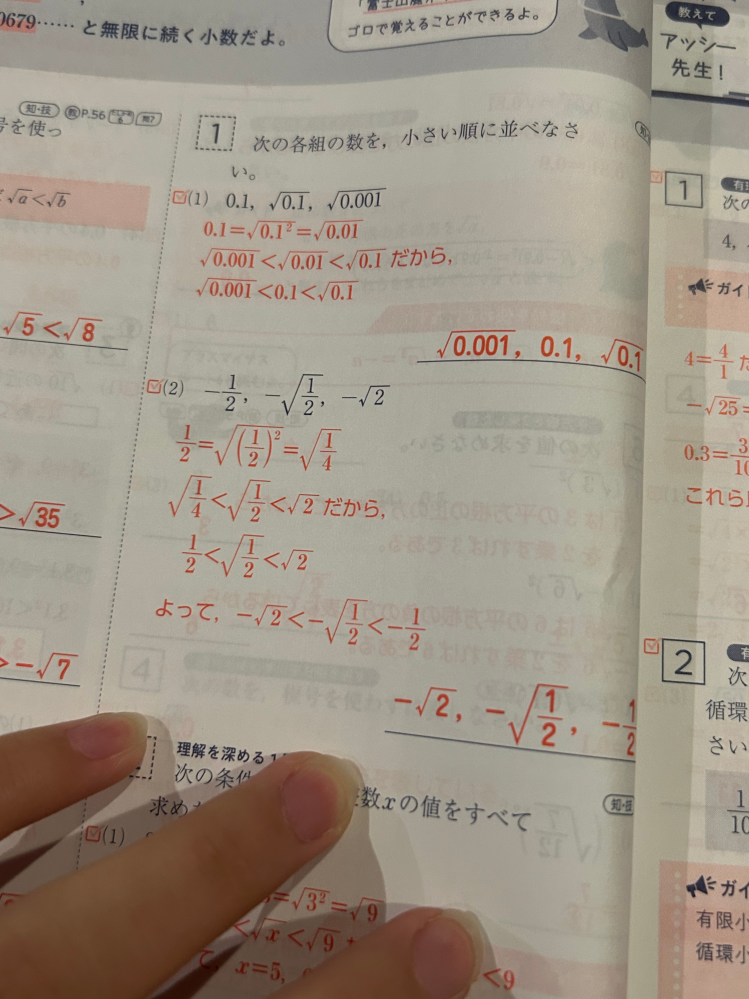 0679…… と無限に続く小数だよ。
ゴロで覚えることができるよ。
教えて
アッシー
先生！
知・技 教P.56
号を使っ
√a<√b
√5<√8
>√35
>-√7
1 次の各組の数を，小さい順に並べなさ
い。
(1) 0.1，√0.1，√0.001
0.1=√0.1²=√0.01
√0.001<√0.01<√0.1 だから，
√0.001<0.1<√0.1
√0.001，0.1，√0.1
(2) -1/2，-√(1/2)，-√2
1/2=√((1/2)²)=√(1/4)
√(1/4)<√(1/2)<√2 だから，
1/2<√(1/2)<√2
よって，-√2<-√(1/2)<-1/2
-√2，-√(1/2)，-1/2
理解を深める
次の条件
数xの値をすべて
求め
知・技
(1)
=√3²=√9
<√x<√9
て，x=5，
<9
1
次の
4，
ガイ
4=4/1 だ
-√25=
0.3=3/10
これら
2
次
循環
さい
1/10
ガイ
有限小
循環小